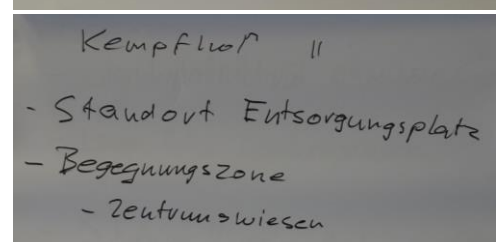 Kempfhof II
- Standort Entsorgungsplatz
- Begegnungszone
- Zentrumswiesen